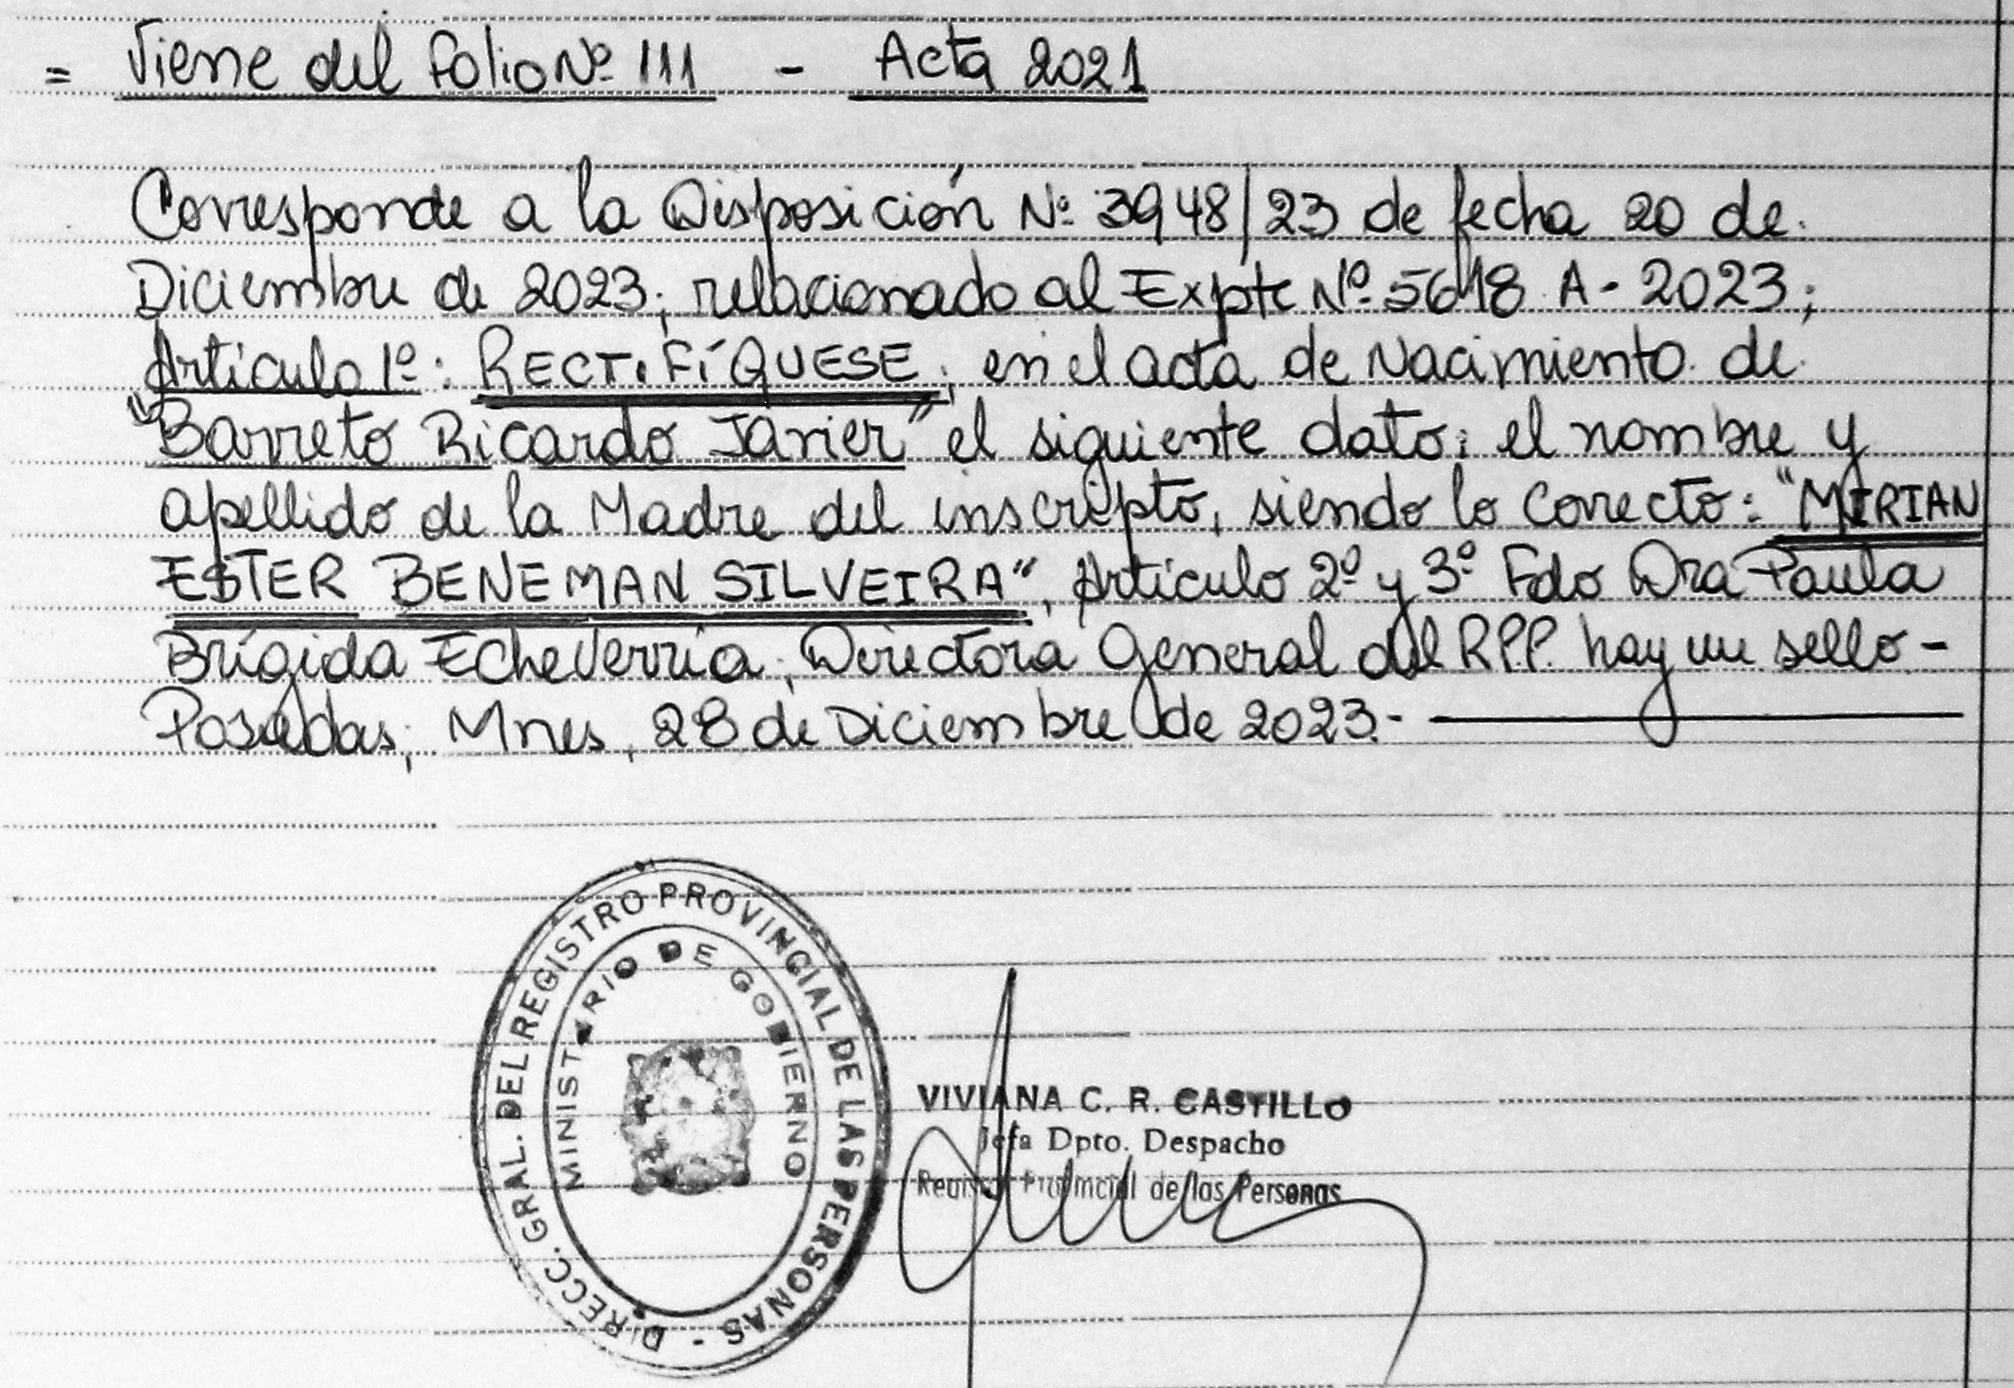 = Viene del folio Nº 111 - Acta 2021
Corresponde a la Disposición Nº 3948/23 de fecha 20 de
Diciembre de 2023; relacionado al Expte Nº 5618 A-2023;
Artículo 1º: RECTIFÍQUESE, en el acta de Nacimiento de
"Barreto Ricardo Javier" el siguiente dato: el nombre y
apellido de la Madre del inscripto, siendo lo correcto: "MIRIAN
ESTER BENEMAN SILVEIRA", Artículo 2º y 3º Fdo Dra Paula
Brígida Echeverría, Directora General del R.P.P. hay un sello -
Posadas, Mnes, 28 de Diciembre de 2023.-
DIRECC. GRAL. DEL REGISTRO PROVINCIAL DE LAS PERSONAS -
MINISTERIO DE GOBIERNO
VIVIANA C. R. CASTILLO
Jefa Dpto. Despacho
Registro Provincial de las Personas